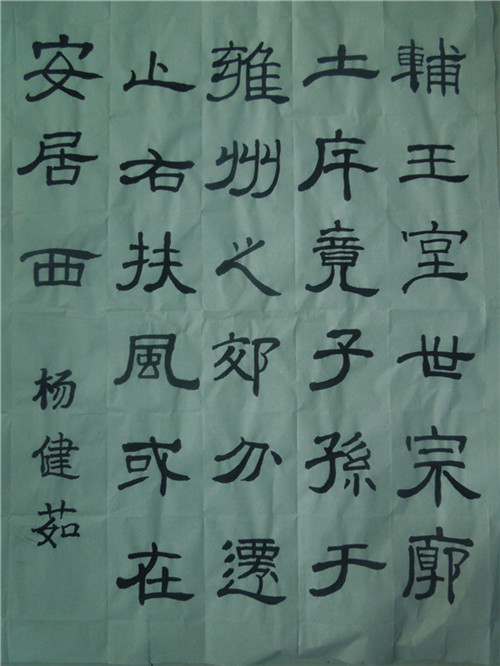 輔王室世宗廓
土斥竟子孫于
雍州之郊分遷
止右扶風或在
安居西
杨健茹